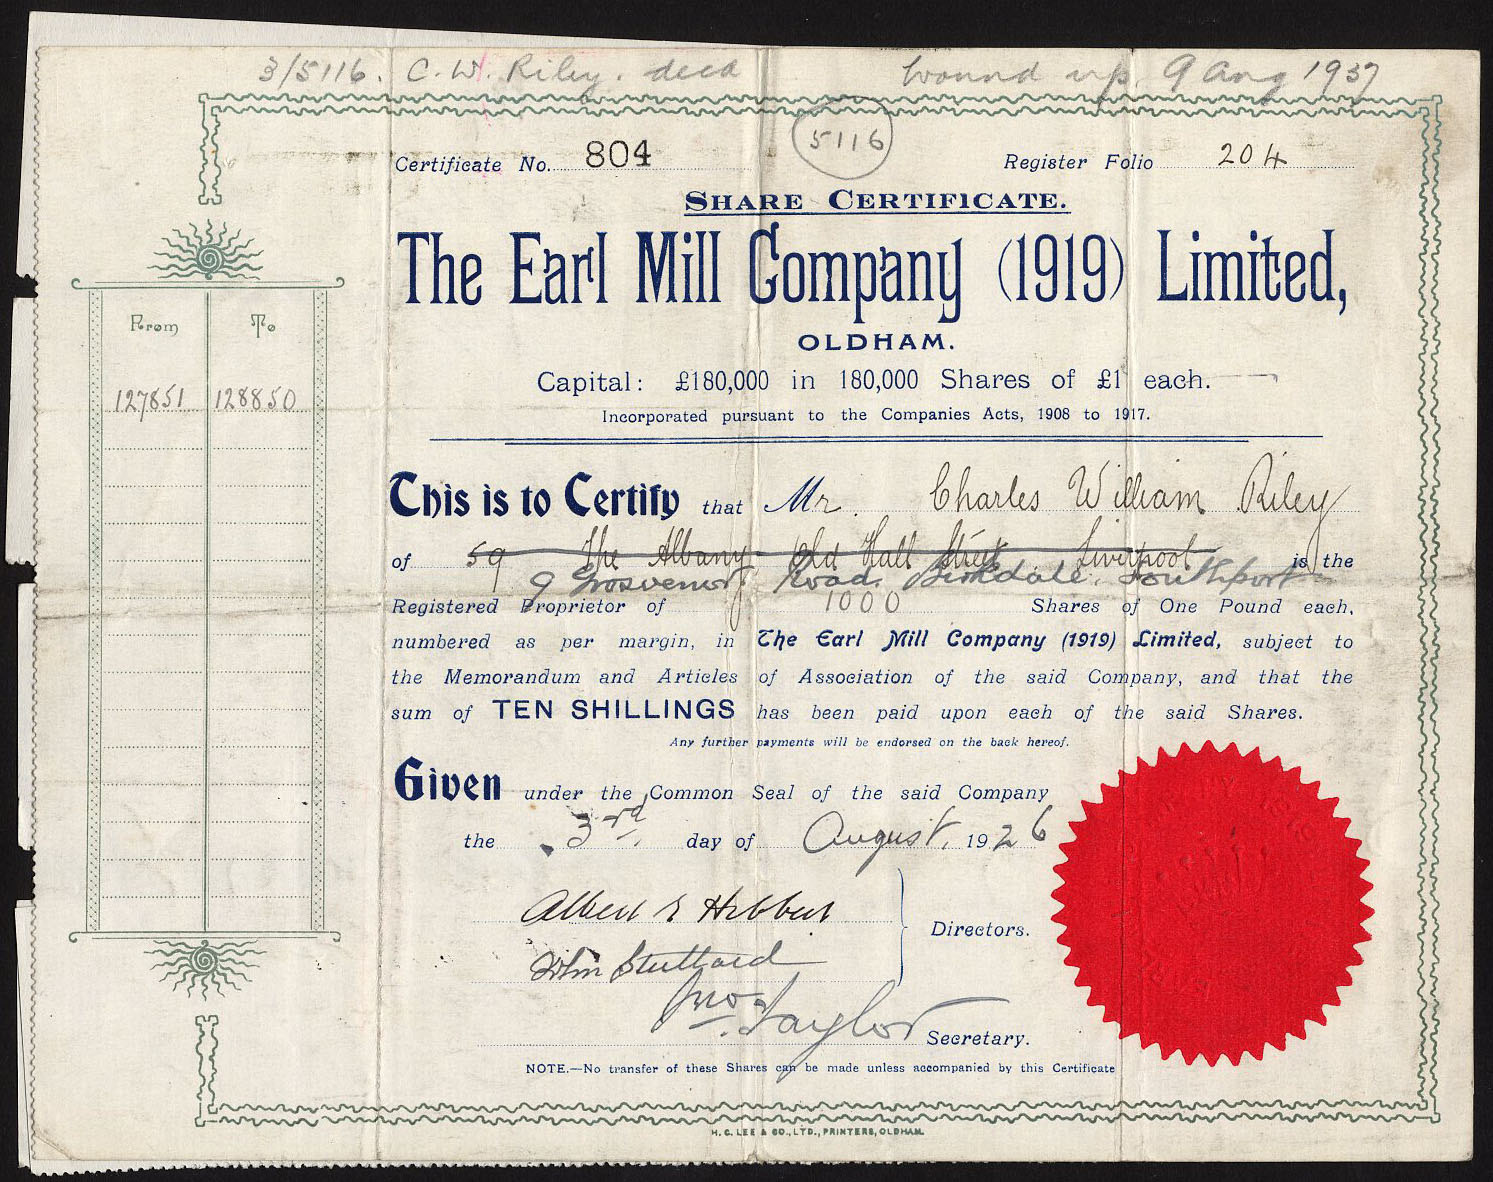 3/5116. C. W. Riley. decd wound up 9 Aug 1937
5116
Certificate No. 804 Register Folio 204
SHARE CERTIFICATE.
The Earl Mill Company (1919) Limited,
OLDHAM.
Capital: £180,000 in 180,000 Shares of £1 each.
Incorporated pursuant to the Companies Acts, 1908 to 1917.
From To
127851 128850
This is to Certify that Mr. Charles William Riley
of 59 The Albany Old Hall Street Liverpool is the
9 Grosvenor Road. Birkdale. Southport
Registered Proprietor of 1000 Shares of One Pound each,
numbered as per margin, in The Earl Mill Company (1919) Limited, subject to
the Memorandum and Articles of Association of the said Company, and that the
sum of TEN SHILLINGS has been paid upon each of the said Shares.
Any further payments will be endorsed on the back hereof.
Given under the Common Seal of the said Company
the 3rd day of August, 1926
Albert E Hibbert
John Stuttard
Directors.
Jno. Taylor
Secretary.
NOTE.—No transfer of these Shares can be made unless accompanied by this Certificate
H. C. LEE & CO., LTD., PRINTERS, OLDHAM.